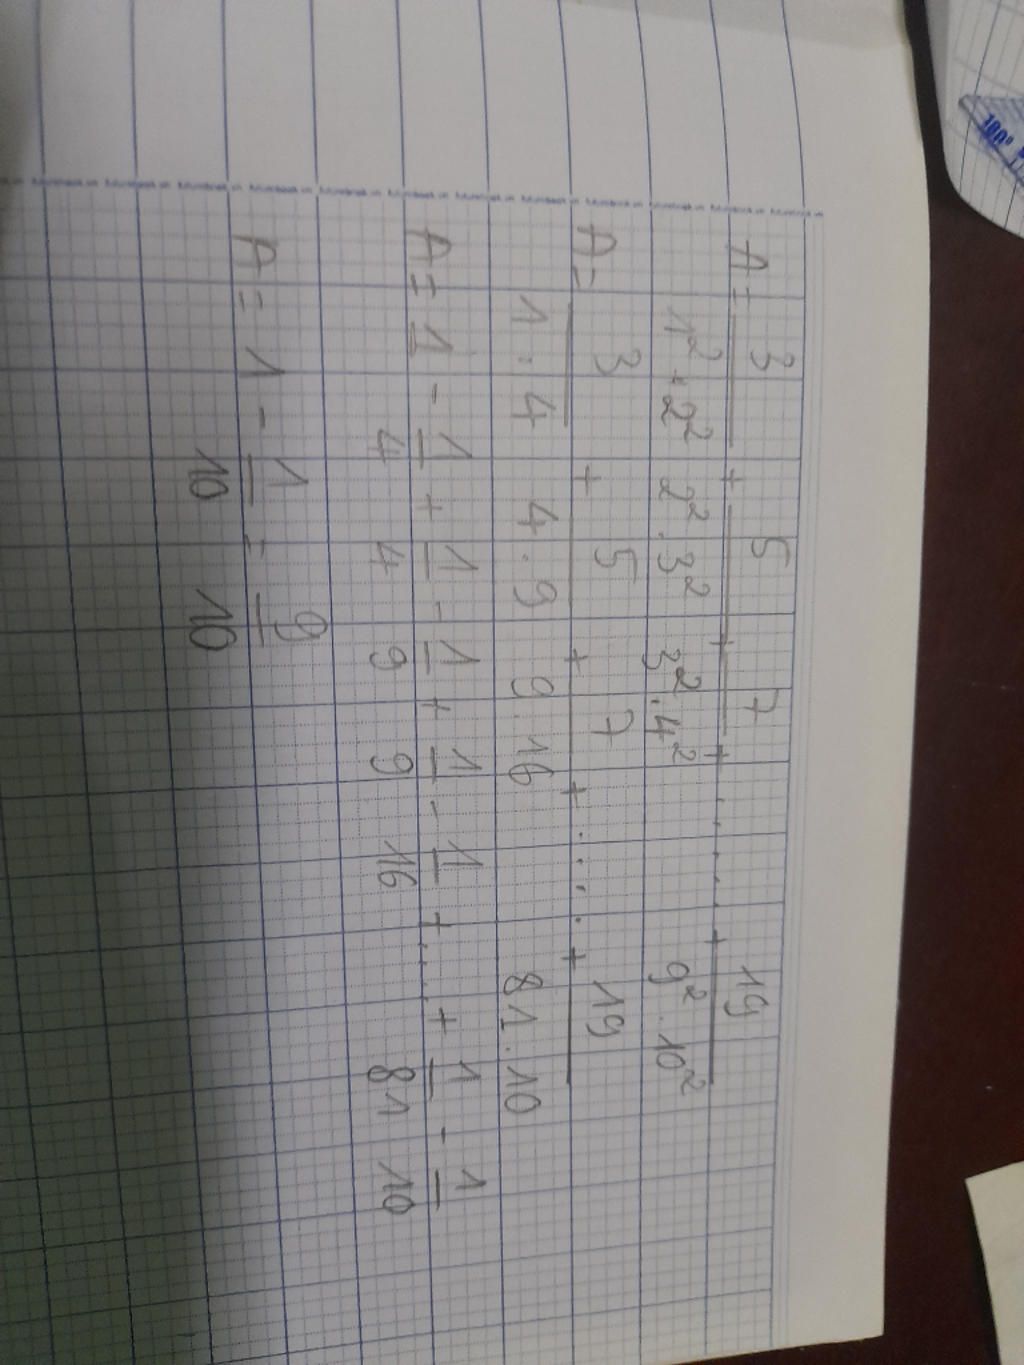 A = 3/(1² · 2²) + 5/(2² · 3²) + 7/(3² · 4²) + ..... + 19/(9² · 10²)
A = 3/(1 · 4) + 5/(4 · 9) + 7/(9 · 16) + .... + 19/(81 · 10)
A = 1 - 1/4 + 1/4 - 1/9 + 1/9 - 1/16 + .... + 1/81 - 1/10
A = 1 - 1/10 = 9/10
180°